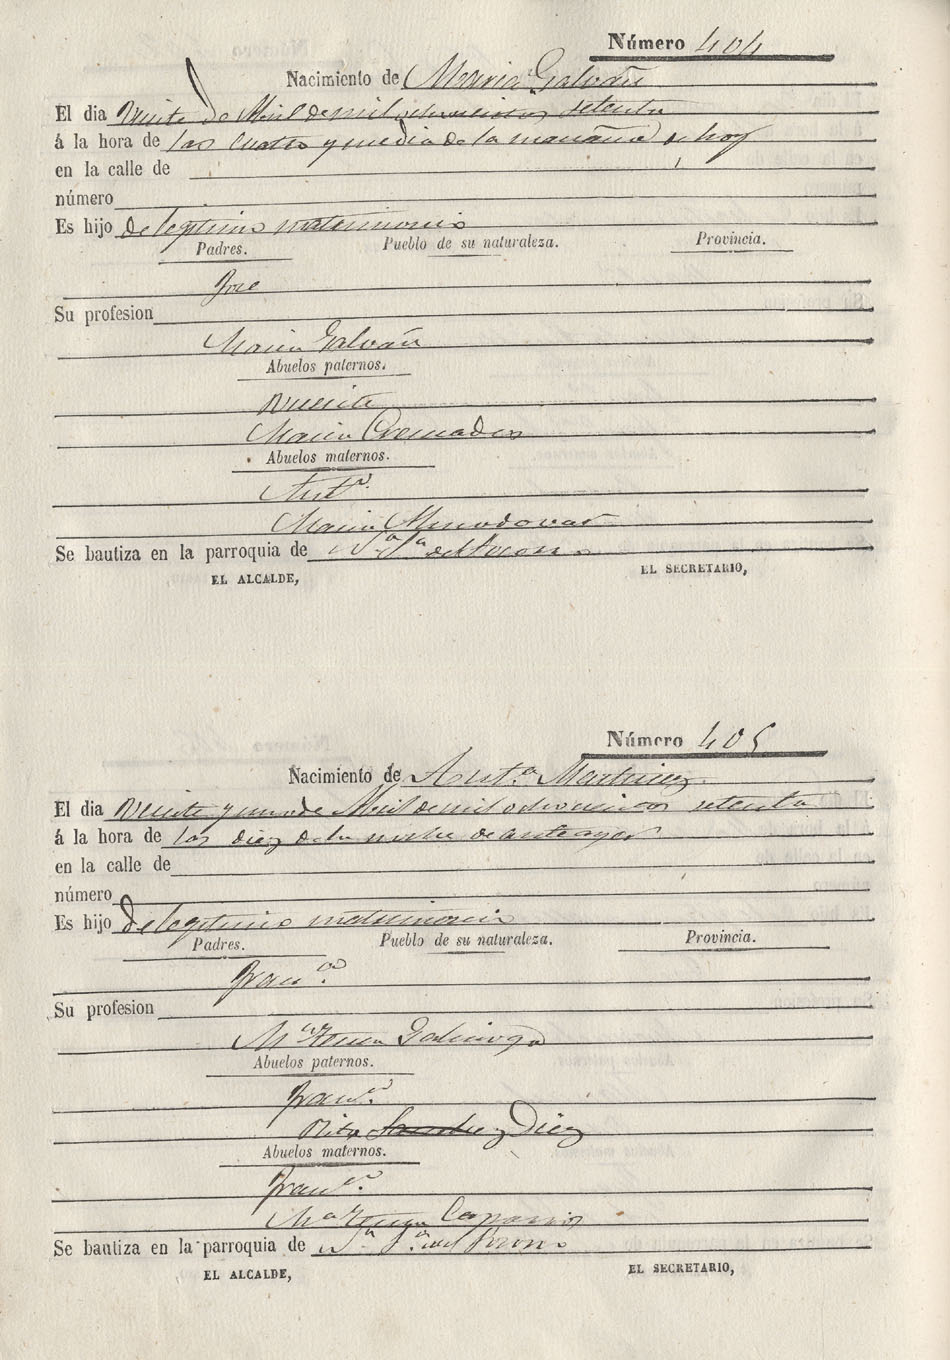 Número 404
Nacimiento de Maria Galvañ
El dia Veinte de Abril de mil ochocientos setenta
á la hora de las cuatro y media de la mañana de hoy
en la calle de
número
Es hijo de legitimo matrimonio
Padres. Pueblo de su naturaleza. Provincia.
José
Su profesion
Maria Galvañ
Abuelos paternos.
Vicente
Maria Cremades
Abuelos maternos.
Antº.
Maria Almodovar
Se bautiza en la parroquia de Nª Sª del Socorro
EL ALCALDE, EL SECRETARIO,
Número 405
Nacimiento de Antª Martinez
El dia Veinte y uno de Abril de mil ochocientos setenta
á la hora de las diez de la noche de anteayer
en la calle de
número
Es hijo de legitimo matrimonio
Padres. Pueblo de su naturaleza. Provincia.
Francº.
Su profesion
Mª Teresa
Abuelos paternos.
Francº.
Rita Sanchez Diez
Abuelos maternos.
Francº.
Mª Teresa
Se bautiza en la parroquia de Nª Sª del Socorro
EL ALCALDE, EL SECRETARIO,